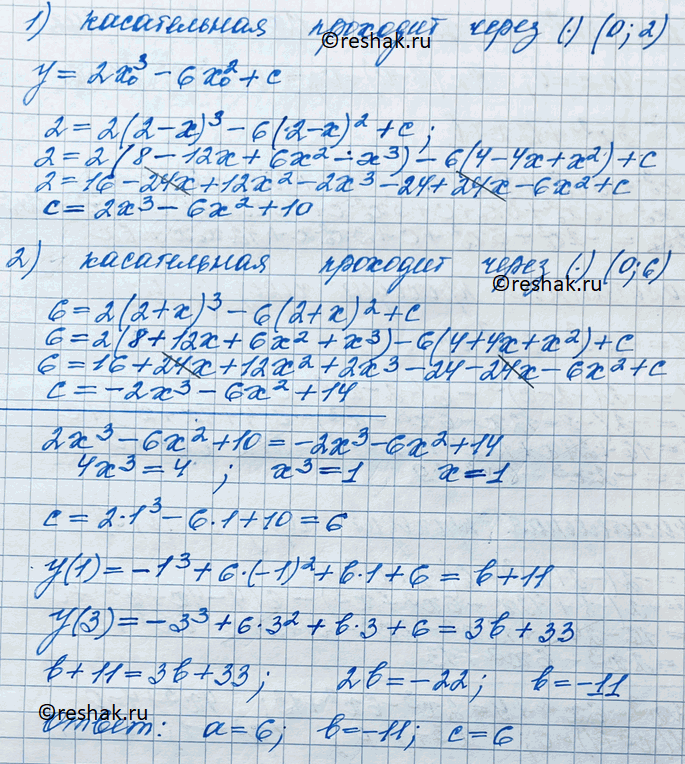 1) касательная проходит через (·) (0; 2)
©reshak.ru
y = 2x₀³ - 6x₀² + c
2 = 2(2-x)³ - 6(2-x)² + c;
2 = 2(8 - 12x + 6x² - x³) - 6(4 - 4x + x²) + c
2 = 16 - 24x + 12x² - 2x³ - 24 + 24x - 6x² + c
c = 2x³ - 6x² + 10
2) касательная проходит через (·) (0; 6)
©reshak.ru
6 = 2(2+x)³ - 6(2+x)² + c
6 = 2(8 + 12x + 6x² + x³) - 6(4 + 4x + x²) + c
6 = 16 + 24x + 12x² + 2x³ - 24 - 24x - 6x² + c
c = -2x³ - 6x² + 14
2x³ - 6x² + 10 = -2x³ - 6x² + 14
4x³ = 4 ; x³ = 1 x = 1
c = 2·1³ - 6·1 + 10 = 6
y(1) = -1³ + 6·(-1)² + b·1 + 6 = b + 11
y(3) = -3³ + 6·3² + b·3 + 6 = 3b + 33
b + 11 = 3b + 33; 2b = -22; b = -11
©reshak.ru
Ответ: a = 6; b = -11; c = 6